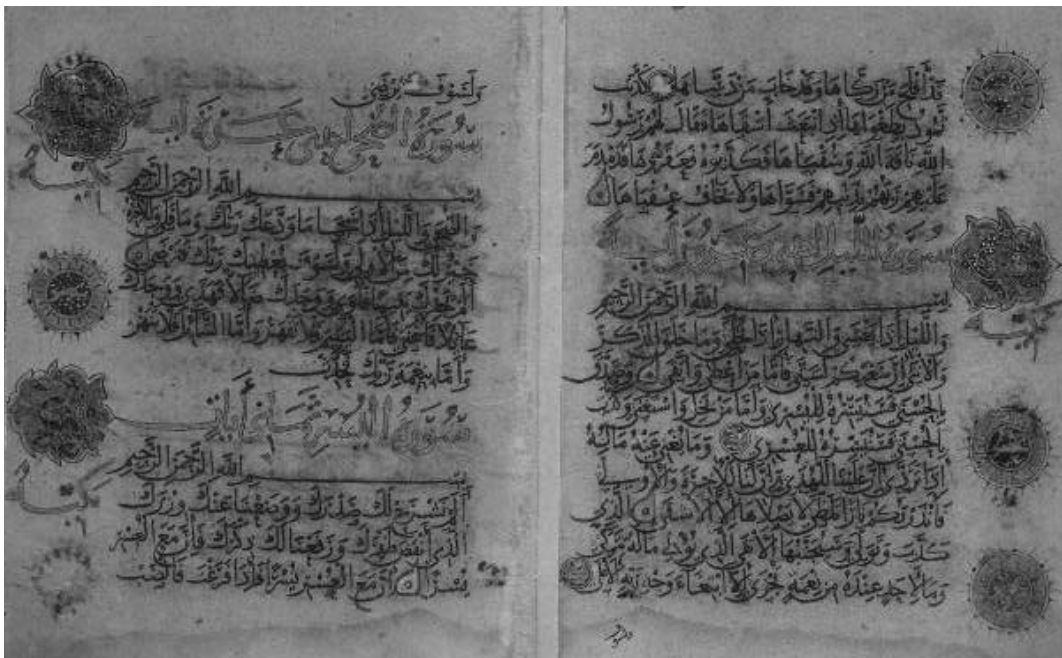 قد أفلح من زكاها وقد خاب من دساها كذبت
ثمود بطغواها إذ انبعث أشقاها فقال لهم رسول
الله ناقة الله وسقياها فكذبوه فعقروها فدمدم
عليهم ربهم بذنبهم فسواها ولا يخاف عقباها
سورة الليل إحدى وعشرون آية
مكية
بسم الله الرحمن الرحيم
والليل إذا يغشى والنهار إذا تجلى وما خلق الذكر
والأنثى إن سعيكم لشتى فأما من أعطى واتقى وصدق
بالحسنى فسنيسره لليسرى وأما من بخل واستغنى وكذب
بالحسنى فسنيسره للعسرى وما يغني عنه ماله
إذا تردى إن علينا للهدى وإن لنا للآخرة والأولى
فأنذرتكم نارا تلظى لا يصلاها إلا الأشقى الذي
كذب وتولى وسيجنبها الأتقى الذي يؤتي ماله يتزكى
وما لأحد عنده من نعمة تجزى إلا ابتغاء وجه ربه الأعلى
ولسوف
ولسوف يرضى
سورة الضحى إحدى عشرة آية
مكية
بسم الله الرحمن الرحيم
والضحى والليل إذا سجى ما ودعك ربك وما قلى وللآخرة
خير لك من الأولى ولسوف يعطيك ربك فترضى
ألم يجدك يتيما فآوى ووجدك ضالا فهدى ووجدك
عائلا فأغنى فأما اليتيم فلا تقهر وأما السائل فلا تنهر
وأما بنعمة ربك فحدث
سورة ثمان آيات
مكية
بسم الله الرحمن الرحيم
ألم نشرح لك صدرك ووضعنا عنك وزرك
الذي أنقض ظهرك ورفعنا لك ذكرك فإن مع العسر
يسرا إن مع العسر يسرا فإذا فرغت فانصب